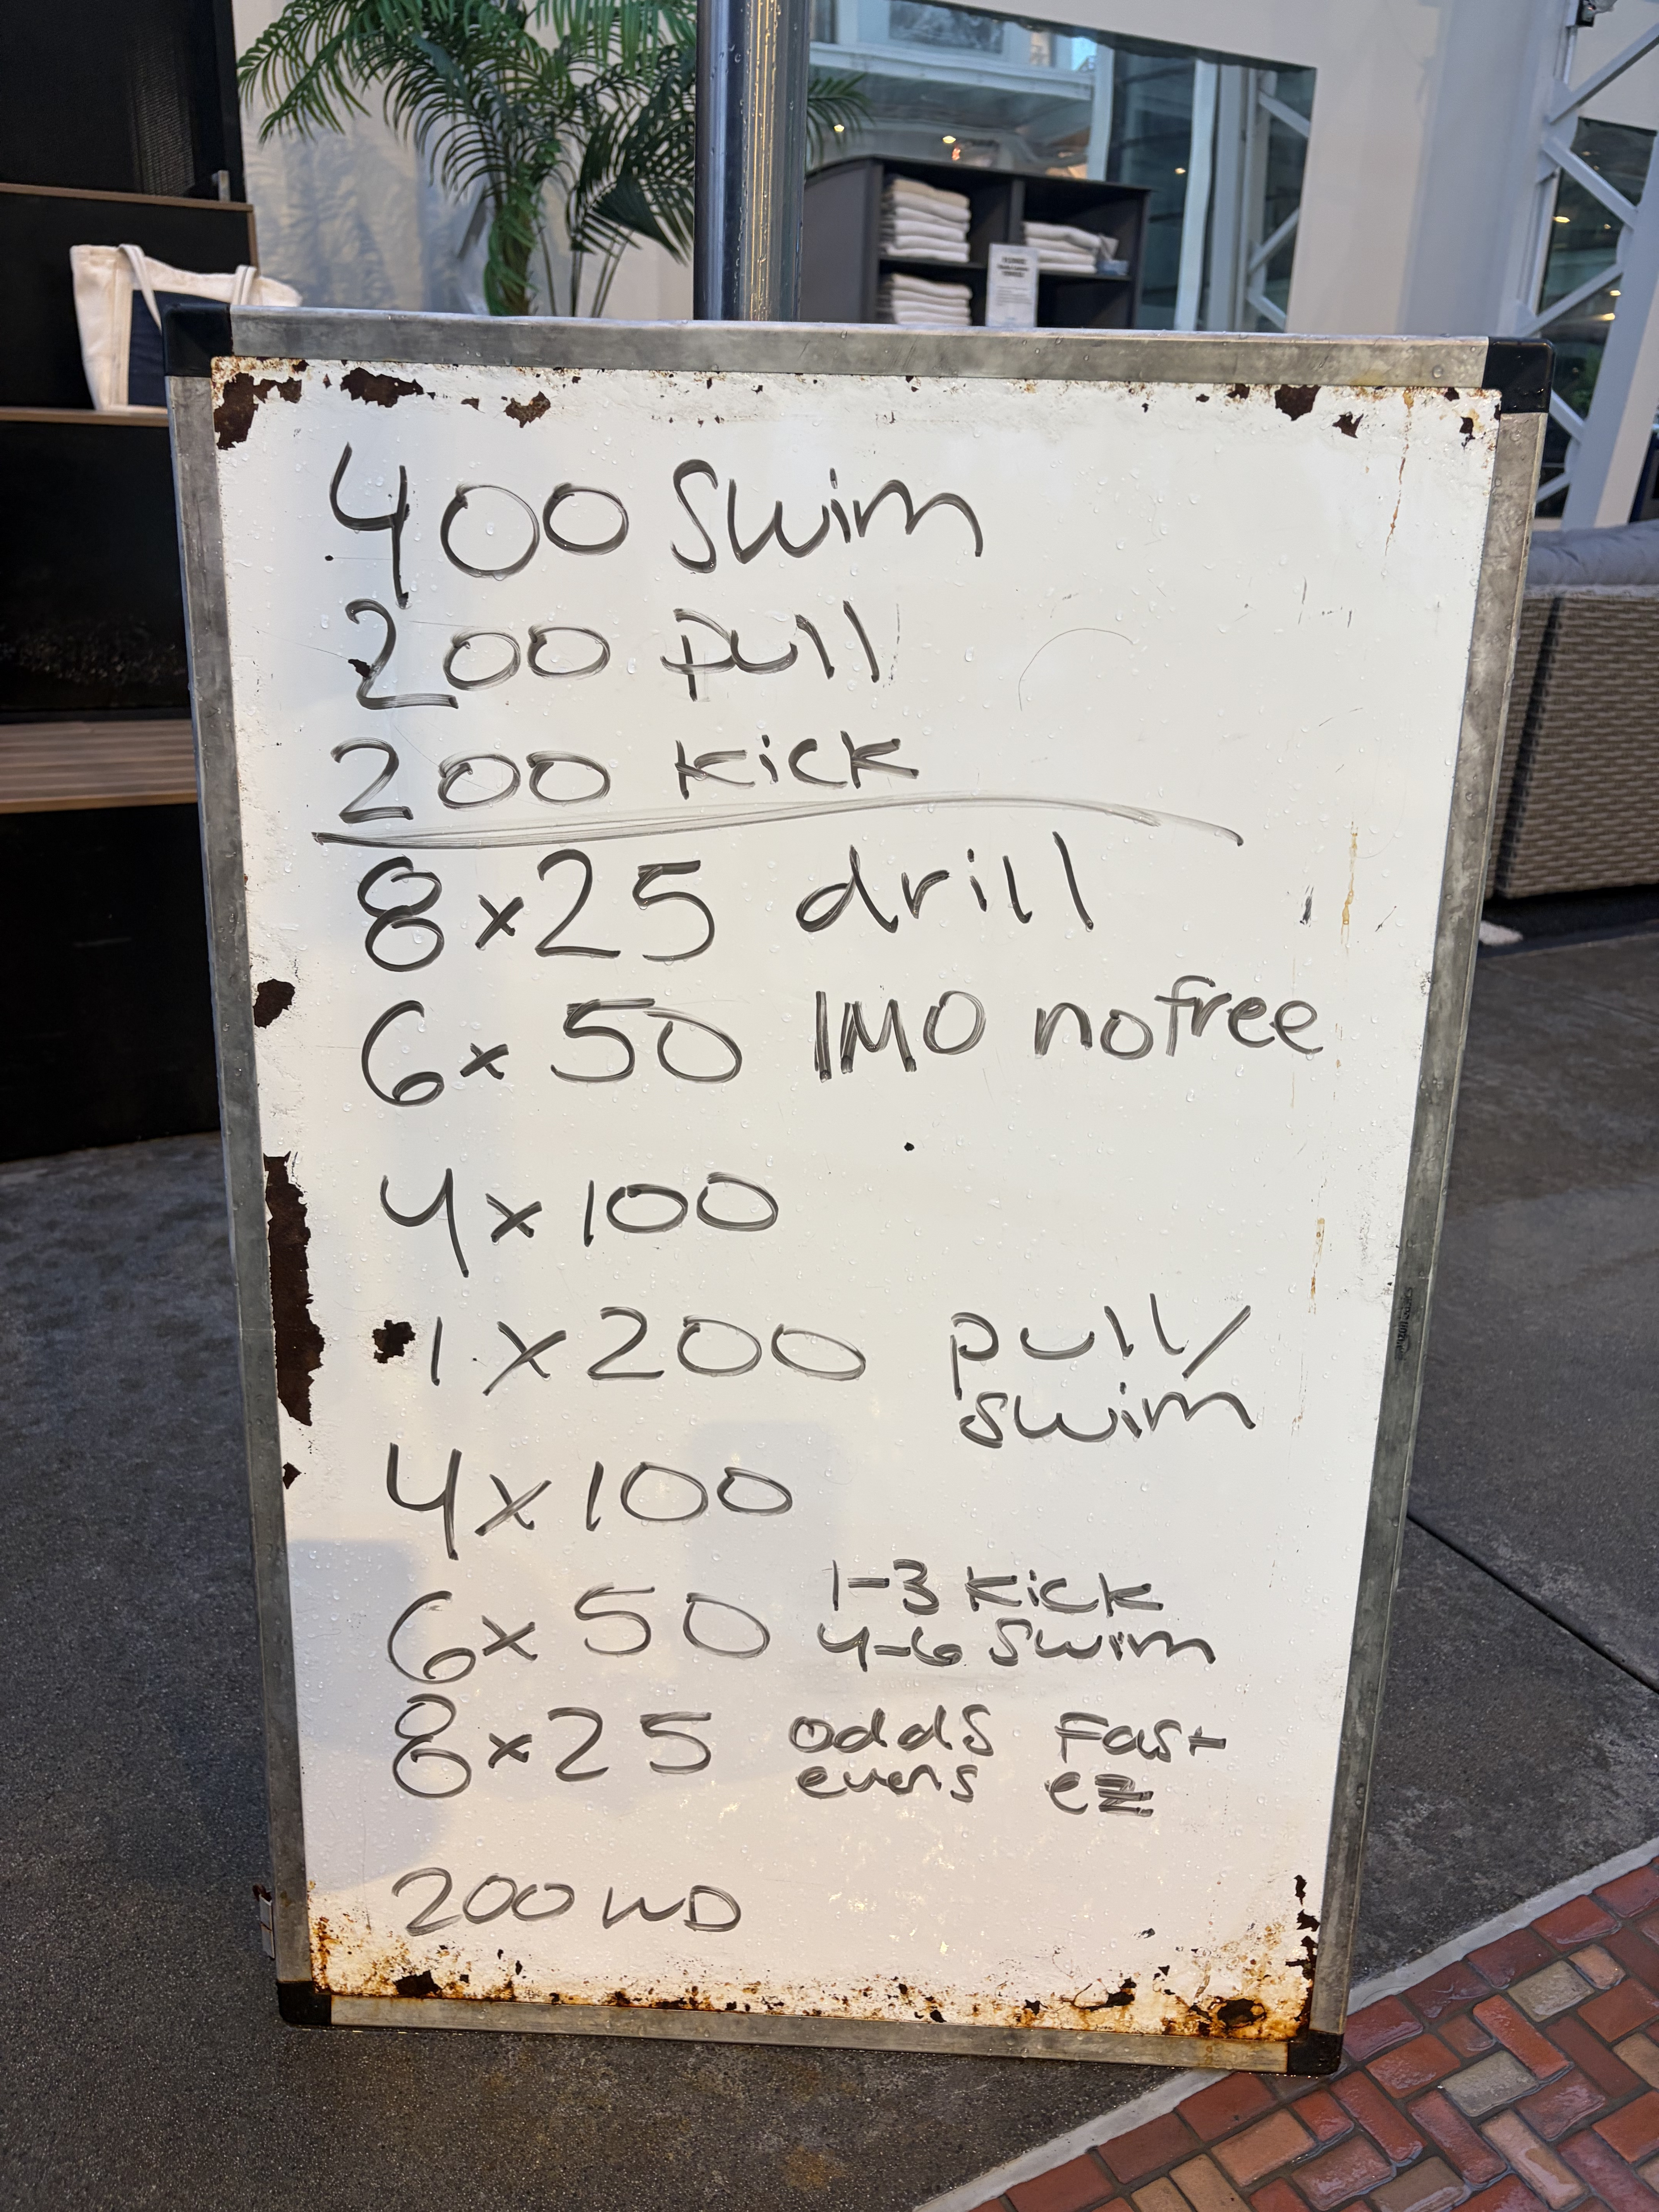 400 Swim
200 pull
200 kick
8x25 drill
6x 50 IMO no free
4x100
1 x 200 pull/
swim
4x100
6x 50 1-3 kick
4-6 swim
8x25 odds Fast
evens ez
200 WD